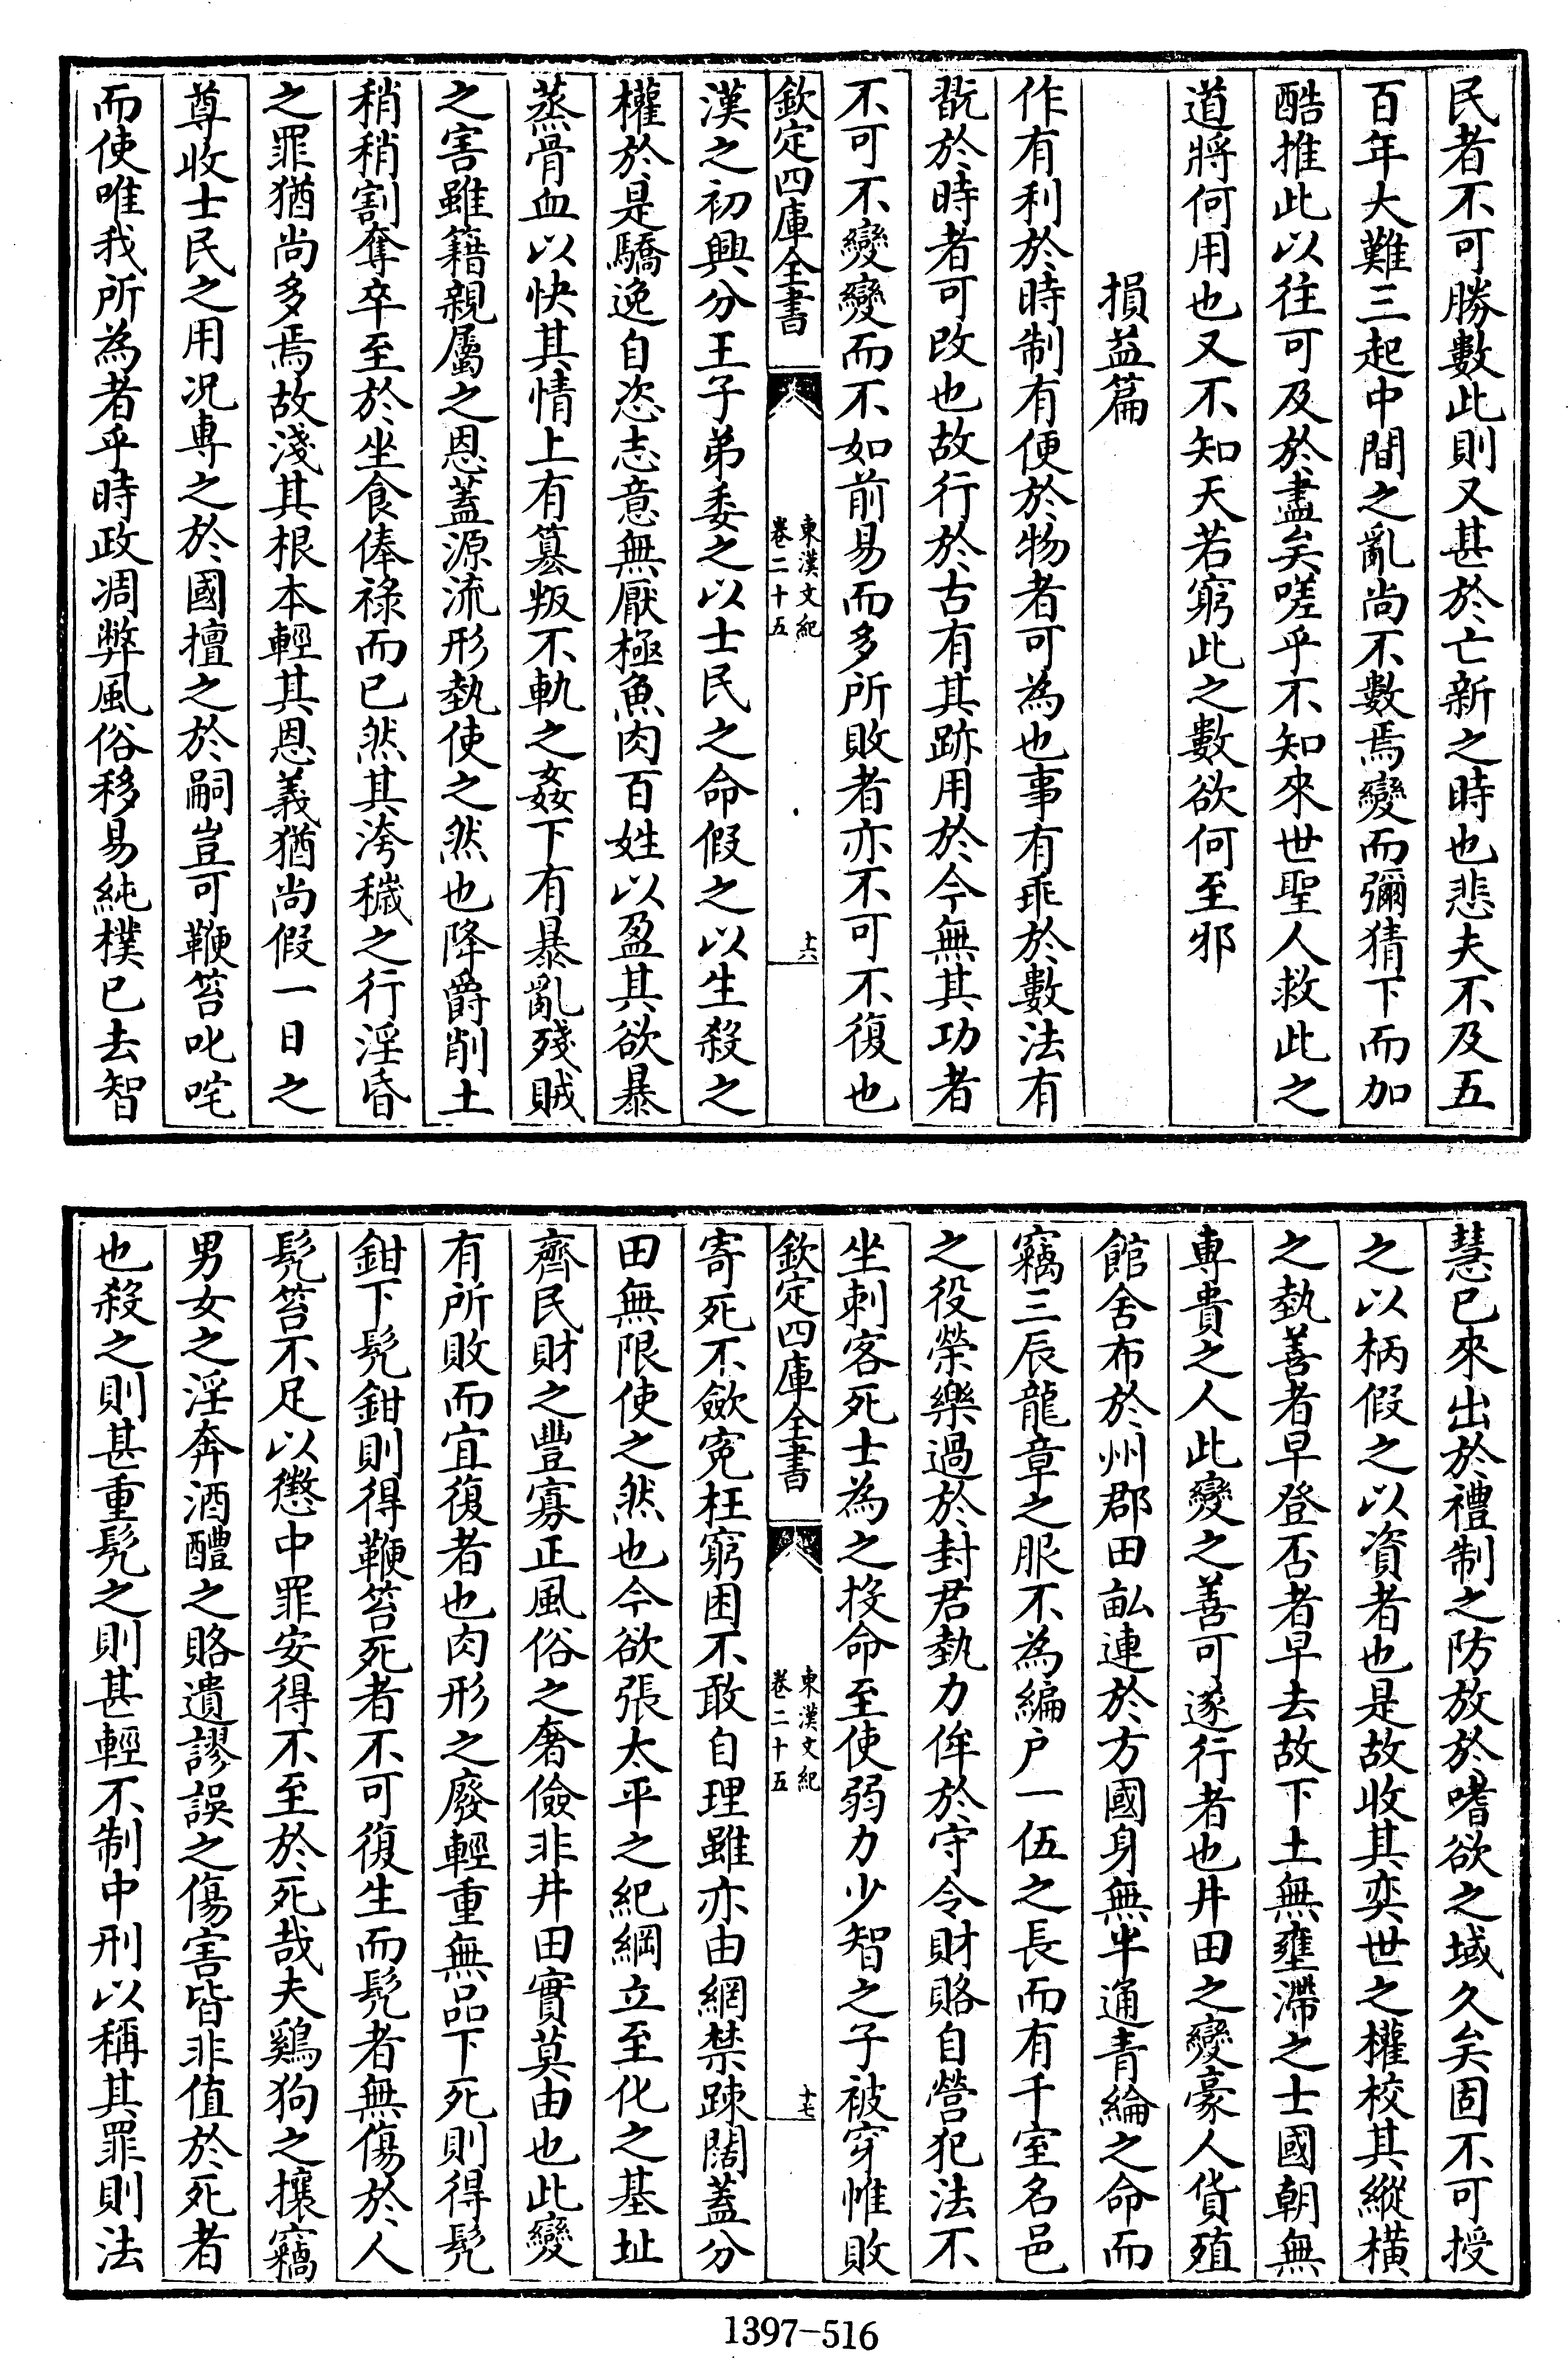 民者不可勝數此則又甚於亡新之時也悲夫不及五
百年大難三起中間之亂尚不數焉變而彌猜下而加
酷推此以往可及於盡矣嗟乎不知來世聖人救此之
道將何用也又不知天若窮此之數欲何至邪
損益篇
作有利於時制有便於物者可為也事有乖於數法有
翫於時者可改也故行於古有其跡用於今無其功者
不可不變變而不如前易而多所敗者亦不可不復也
欽定四庫全書
東漢文紀
卷二十五
十六
漢之初興分王子弟委之以士民之命假之以生殺之
權於是驕逸自恣志意無厭極魚肉百姓以盈其欲暴
蒸骨血以快其情上有篡叛不軌之姦下有暴亂殘賊
之害雖籍親屬之恩蓋源流形埶使之然也降爵削土
稍稍割奪卒至於坐食俸祿而已然其洿穢之行淫昏
之罪猶尚多焉故淺其根本輕其恩義猶尚假一日之
尊收士民之用况專之於國擅之於嗣豈可鞭笞叱咤
而使唯我所為者乎時政凋弊風俗移易純樸已去智
慧已來出於禮制之防放於嗜欲之域久矣固不可授
之以柄假之以資者也是故收其奕世之權校其縱橫
之埶善者早登否者早去故下土無壅滯之士國朝無
專貴之人此變之善可遂行者也井田之變豪人貨殖
館舍布於州郡田畝連於方國身無半通青綸之命而
竊三辰龍章之服不為編户一伍之長而有千室名邑
之役榮樂過於封君埶力侔於守令財賂自營犯法不
坐刺客死士為之投命至使弱力少智之子被穿帷敗
欽定四庫全書
東漢文紀
卷二十五
十七
寄死不歛寃枉窮困不敢自理雖亦由網禁疎闊蓋分
田無限使之然也今欲張太平之紀綱立至化之基址
齊民財之豐寡正風俗之奢儉非井田實莫由也此變
有所敗而宜復者也肉形之廢輕重無品下死則得髠
鉗下髠鉗則得鞭笞死者不可復生而髠者無傷於人
髠笞不足以懲中罪安得不至於死哉夫鷄狗之攘竊
男女之淫奔酒醴之賂遺謬誤之傷害皆非值於死者
也殺之則甚重髠之則甚輕不制中刑以稱其罪則法
1397-516